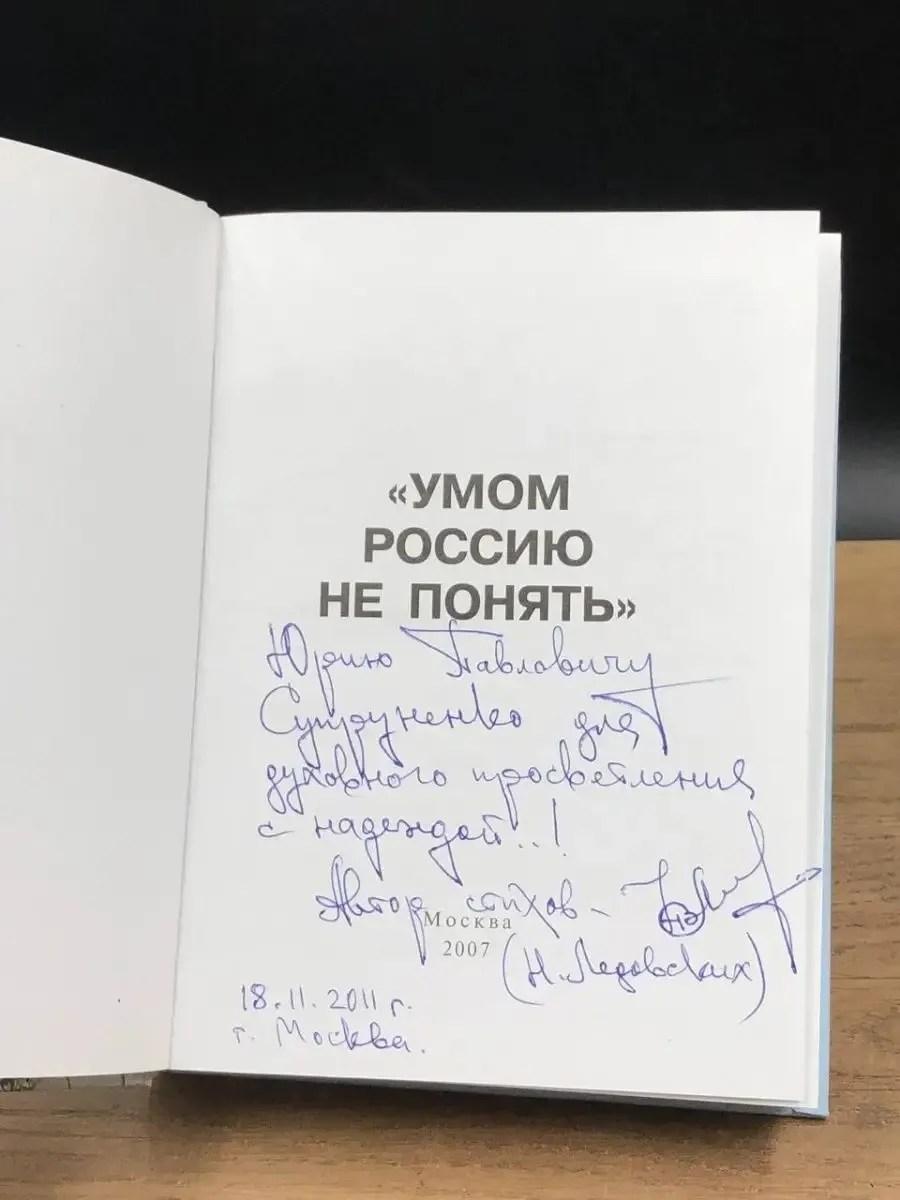 «УМОМ
РОССИЮ
НЕ ПОНЯТЬ»
Юрию Павловичу
Супруненко для
духовного просветления
с надеждой..!
Автор стихов –
Москва
2007
(Н. Ледовских)
18.11.2011 г.
г. Москва.